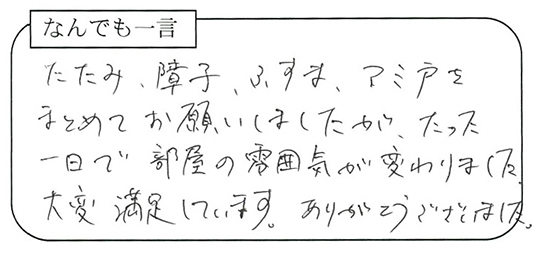 なんでも一言
たたみ、障子、ふすま、アミ戸を
まとめてお願いしましたが、たった
一日で部屋の雰囲気が変わりました。
大変満足しています。ありがとうございました。